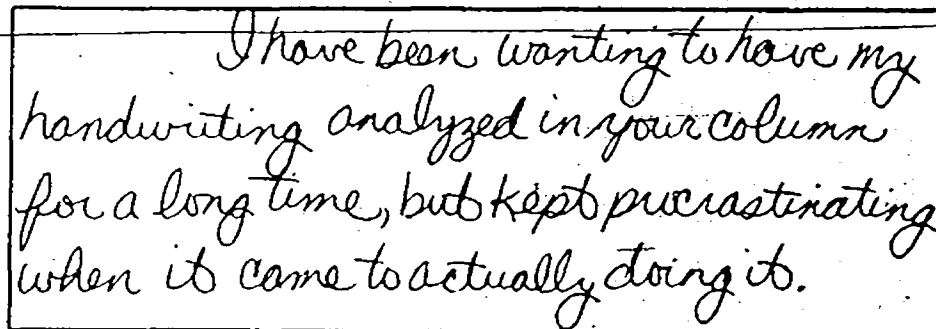 I have been wanting to have my
handwriting analyzed in your column
for a long time, but kept procrastinating
when it came to actually doing it.